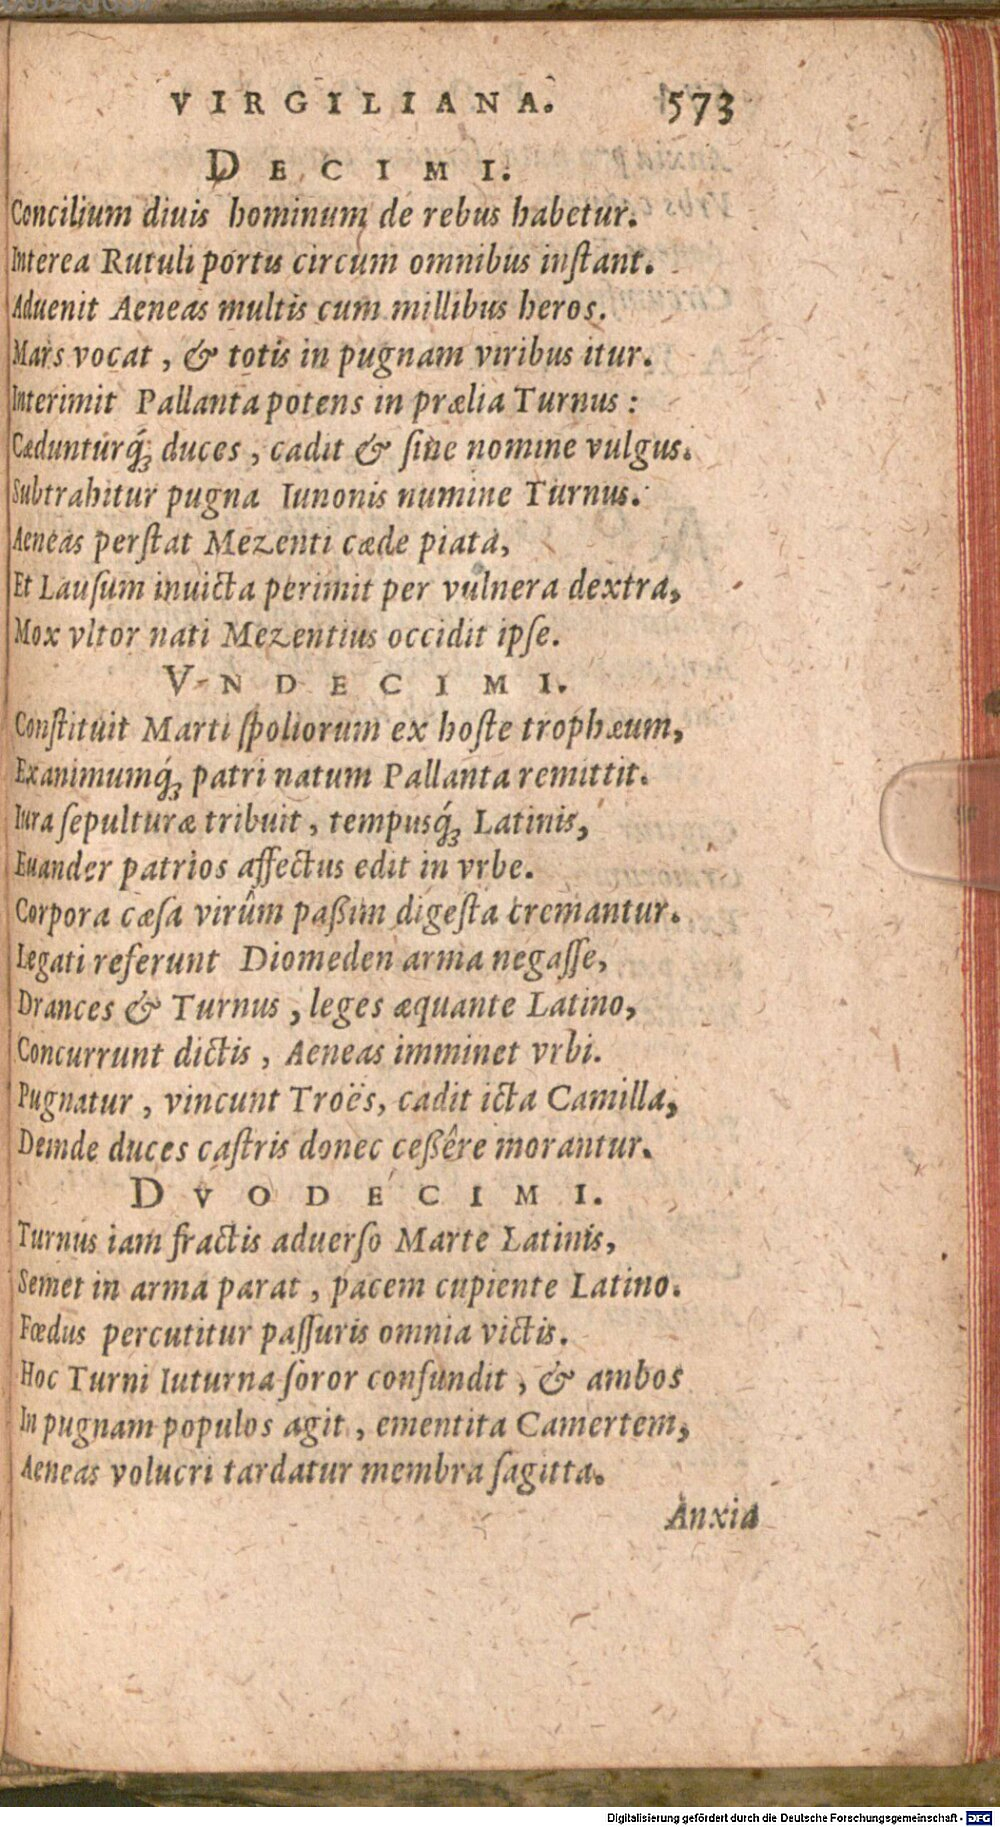 VIRGILIANA. 573
DECIMI.
Concilium diuis hominum de rebus habetur.
Interea Rutuli portis circum omnibus instant.
Aduenit Aeneas multis cum millibus heros.
Mars vocat, & totis in pugnam viribus itur.
Interimit Pallanta potens in prælia Turnus:
Cæduntuŕq; duces, cadit & sine nomine vulgus.
Subtrahitur pugna Iunonis numine Turnus.
Aeneas perstat Mezenti cæde piata,
Et Lausum inuicta perimit per vulnera dextra,
Mox vltor nati Mezentius occidit ipse.
VNDECIMI.
Constituit Marti spoliorum ex hoste trophæum,
Exanimumq́; patri natum Pallanta remittit.
Iura sepulturæ tribuit, tempusq́; Latinis,
Euander patrios affectus edit in vrbe.
Corpora cæsa virûm paßim digesta cremantur.
Legati referunt Diomeden arma negasse,
Drances & Turnus, leges æquante Latino,
Concurrunt dictis, Aeneas imminet vrbi.
Pugnatur, vincunt Troës, cadit icta Camilla,
Deinde duces castris donec ceßêre morantur.
DVODECIMI.
Turnus iam fractis aduerso Marte Latinis,
Semet in arma parat, pacem cupiente Latino.
Fœdus percutitur passuris omnia victis.
Hoc Turni Iuturna soror confundit, & ambos
In pugnam populos agit, ementita Camertem,
Aeneas volucri tardatur membra sagitta.
Anxia
Digitalisierung gefördert durch die Deutsche Forschungsgemeinschaft - DFG